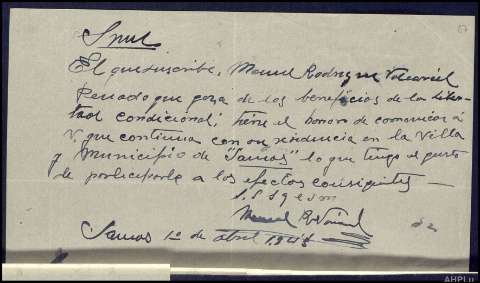 El que suscribe, Manuel Rodriguez Valcarcel
Penado que goza de los beneficios de la liber-
tad condicional; tiene el honor de comunicar á
V. que continua con su residencia en la Villa
y Municipio de "Samos" lo que tengo el gusto
de participarle a los efectos consiguientes —
Samos 1º de abril 1948
AHPLu